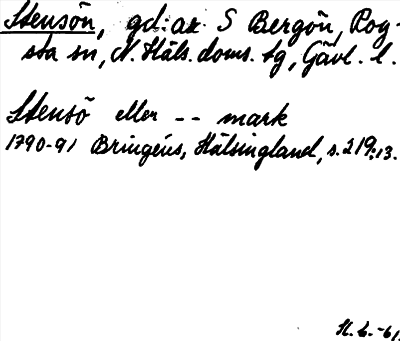 Stensön, gd: ar S Bergön, Rog-
sta sn, N. Häls. doms. tg, Gävl. l.
Stensö eller -- mark
1790-91 Bringéus, Hälsingland, s. 219:13.
H. L. -61.